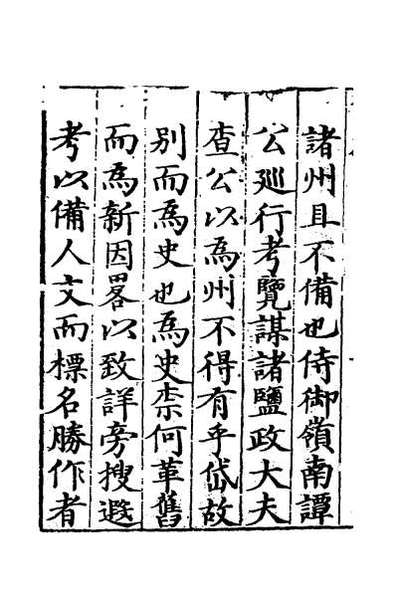 諸州且不備也侍御嶺南譚
公廵行考覽謀諸鹽政大夫
查公以爲州不得有乎岱故
别而爲史也爲史柰何革舊
而爲新因畧以致詳旁搜遐
考以備人文而標名勝作者